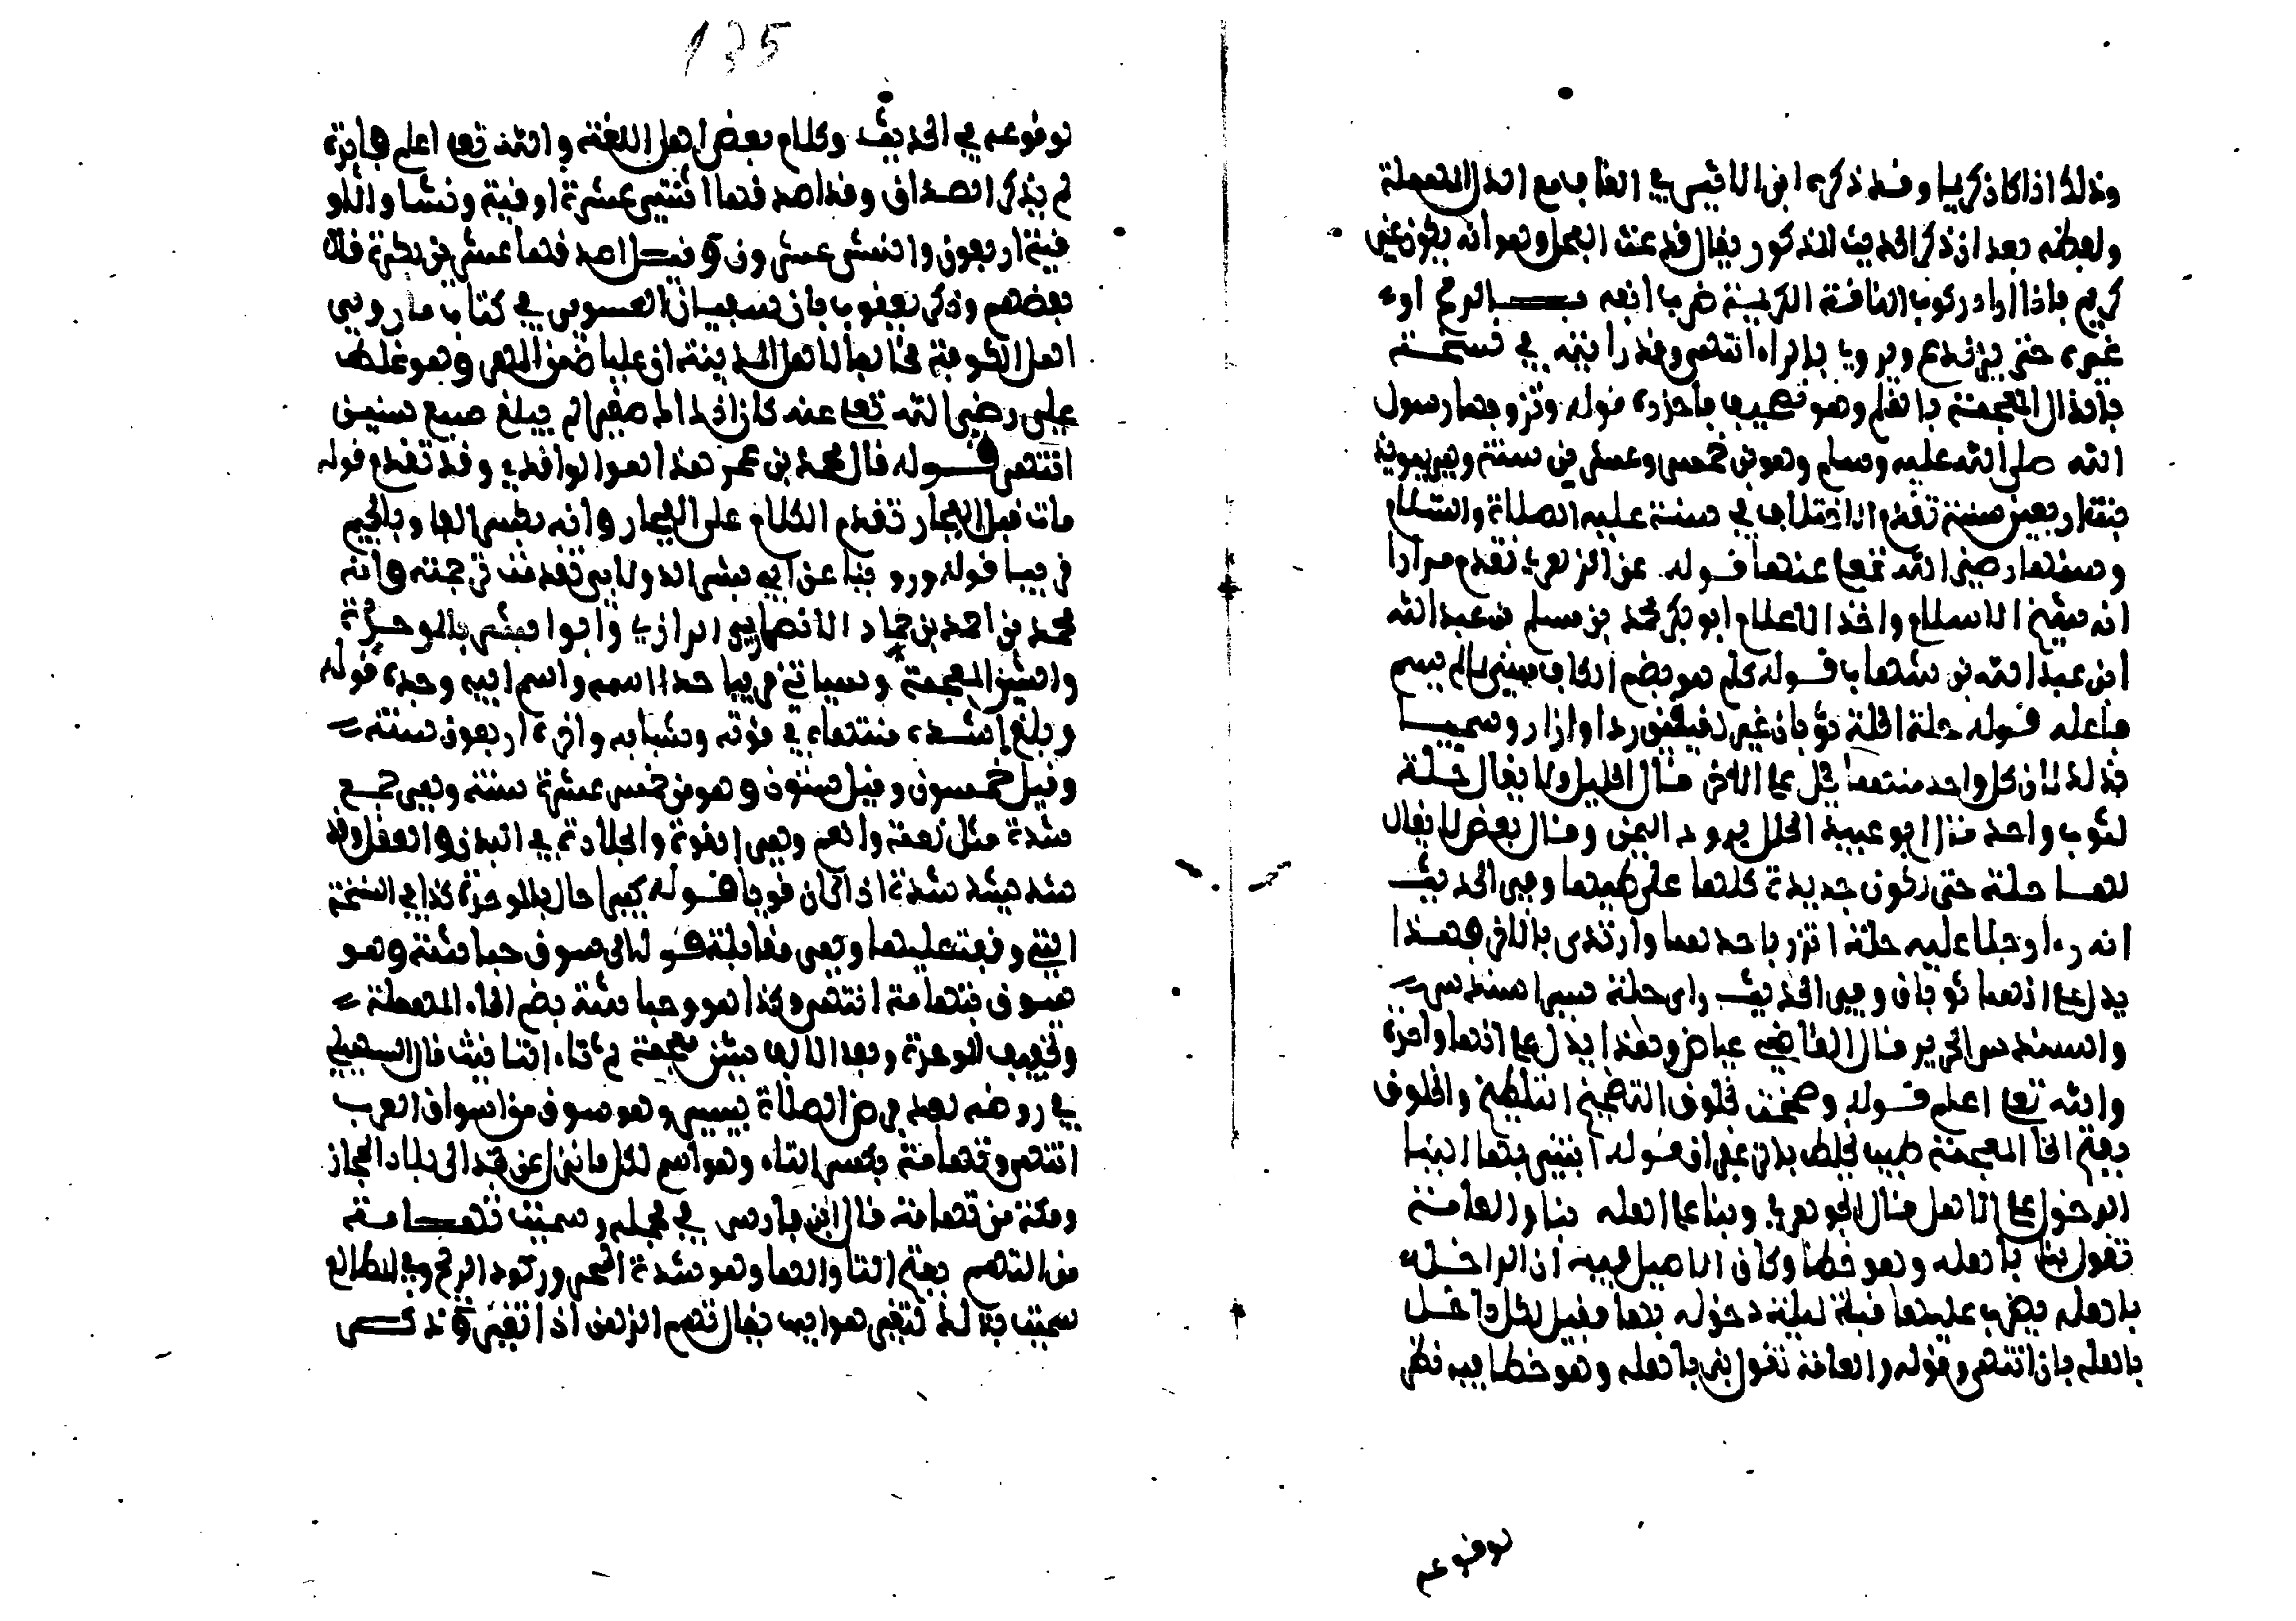 وذلك اذا كان كريما وقد ذكره ابن الاثير في القاف مع الدال المهملة
ولفظه بعد ان ذكر الحديث المذكور يقال قدعت الفحل وهو انه يكون غير
كريم فاذا اراد ركوب الناقة الكريمة ضرب انفه بـالرمح او
غيره حتى يرتدع ويروى بالراء انتهى وقد رايته في نسخة
بالذال المعجمة بالقلم وهو تصحيف فاحذره قوله وتزوجها رسول
الله صلى الله عليه وسلم وهو بن خمس وعشرين سنة وهي يوميذ
بنت اربعين سنة تقدم الاختلاف في سنه عليه الصلاة والسلام
وسنها رضي الله تعا عنها قوله عن الزهري تقدم مرارا
انه شيخ الاسلام واحد الاعلام ابو بكر محمد بن مسلم بن عبد الله
ابن عبد الله بن شهاب قوله كلم هو بضم الكاف مبني لما لم يسم
فاعله قوله حلة الحلة ثوبان غير لفيقين ردا وازار وسميا
بذلك لان كل واحد منهما يحل على الاخر قال الخليل ولا يقال حلة
لثوب واحد قال ابو عبيد الحلل برود اليمن وقال بعض لا يقال
لها حلة حتى تكون جديدة لحلها على طيها وفي الحديث
انه راى رجلا عليه حلة اتزر باحدهما وارتدى بالاخرى فهذا
يدل على انهما ثوبان وفي الحديث راى حلة سيرا سندس
والسندس الحرير قال القاضي عياض وهذا يدل على انها واحدة
والله تعا اعلم قوله وضمخت بخلوق التضميخ التلطيخ والخلوق
بفتح الخا المعجمة طيب يخلط بالزعفران قوله ابتنى بها البنا
الدخول على الاهل قال الجوهري وبنا على اهله بنا والعامة
تقول بنا باهله وهو خطا وكان الاصل فيه ان الداخل
باهله يضرب عليها قبة ليلة دخوله بها فقيل لكل داخل
باهله بان انتهى وقوله والعامة تقول بنى باهله وهو خطا فيه نظر
لوقوعه
135
لوقوعه في الحديث وكلام بعض اهل اللغة والله تعا اعلم فايدة
لم يذكر الصداق وقد اصدقها اثنتي عشرة اوقية ونشا والاو
قية اربعون والنش عشرون وقيل اصدقها عشرين بكرة قال
بعضهم وذكر يعقوب بن سفيان الفسوي في كتاب ما روى
اهل الكوفة مخالفا لاهل المدينة ان عليا ضمن المهر وهو غلط
علي رضي الله تعا عنه كان اذ ذاك صغيرا لم يبلغ سبع سنين
انتهى قوله قال محمد بن عمر هذا هو الواقدي وقد تقدم قوله
مات قبل الفجار تقدم الكلام على الفجار وانه بكسر الفا وبالجيم
قريبا قوله وروينا عن ابي بشر الدولابي تقدمت ترجمته وانه
محمد بن احمد بن حماد الانصاري الرازي وابوا بشر بالموحدة
والشين المعجمة وسياتي قريبا هذا اسمه واسم ابيه وجده قوله
وبلغ اشده منتهاه في قوته وشبابه واخره اربعون سنة
وقيل خمسون وقيل ستون وهو من خمس عشرة سنة وهي جمع
شدة مثل نعمة وانعم وهي القوة والجلادة في البدن والعقل وقد
شد يشد شدة اذا كان قويا قوله كبير مال بالموحدة كذا في النسخة
التي وقفت عليها وهي مقابلة قوله الى سوق حباشة وهو
سوق بتهامة انتهى وكذا هو وحباشة بضم الحاء المهملة
وتخفيف الموحدة وبعد الالف شين معجمة ثم تاء التانيث قال السهيلي
في روضه بعد فرض الصلاة بيسير وهو سوق من اسواق العرب
انتهى وتهامة بكسر التاء وهو اسم لكل ما نزل عن نجد الى بلاد الحجاز
ومكة من تهامة قال ابن فارس في مجمله وسميت تهامة
من التهم بفتح التا والها وهو شدة الحر وركود الريح وفي المطالع
سميت بذلك لتغير هوايها يقال تهم الدهن اذا تغير وذكر